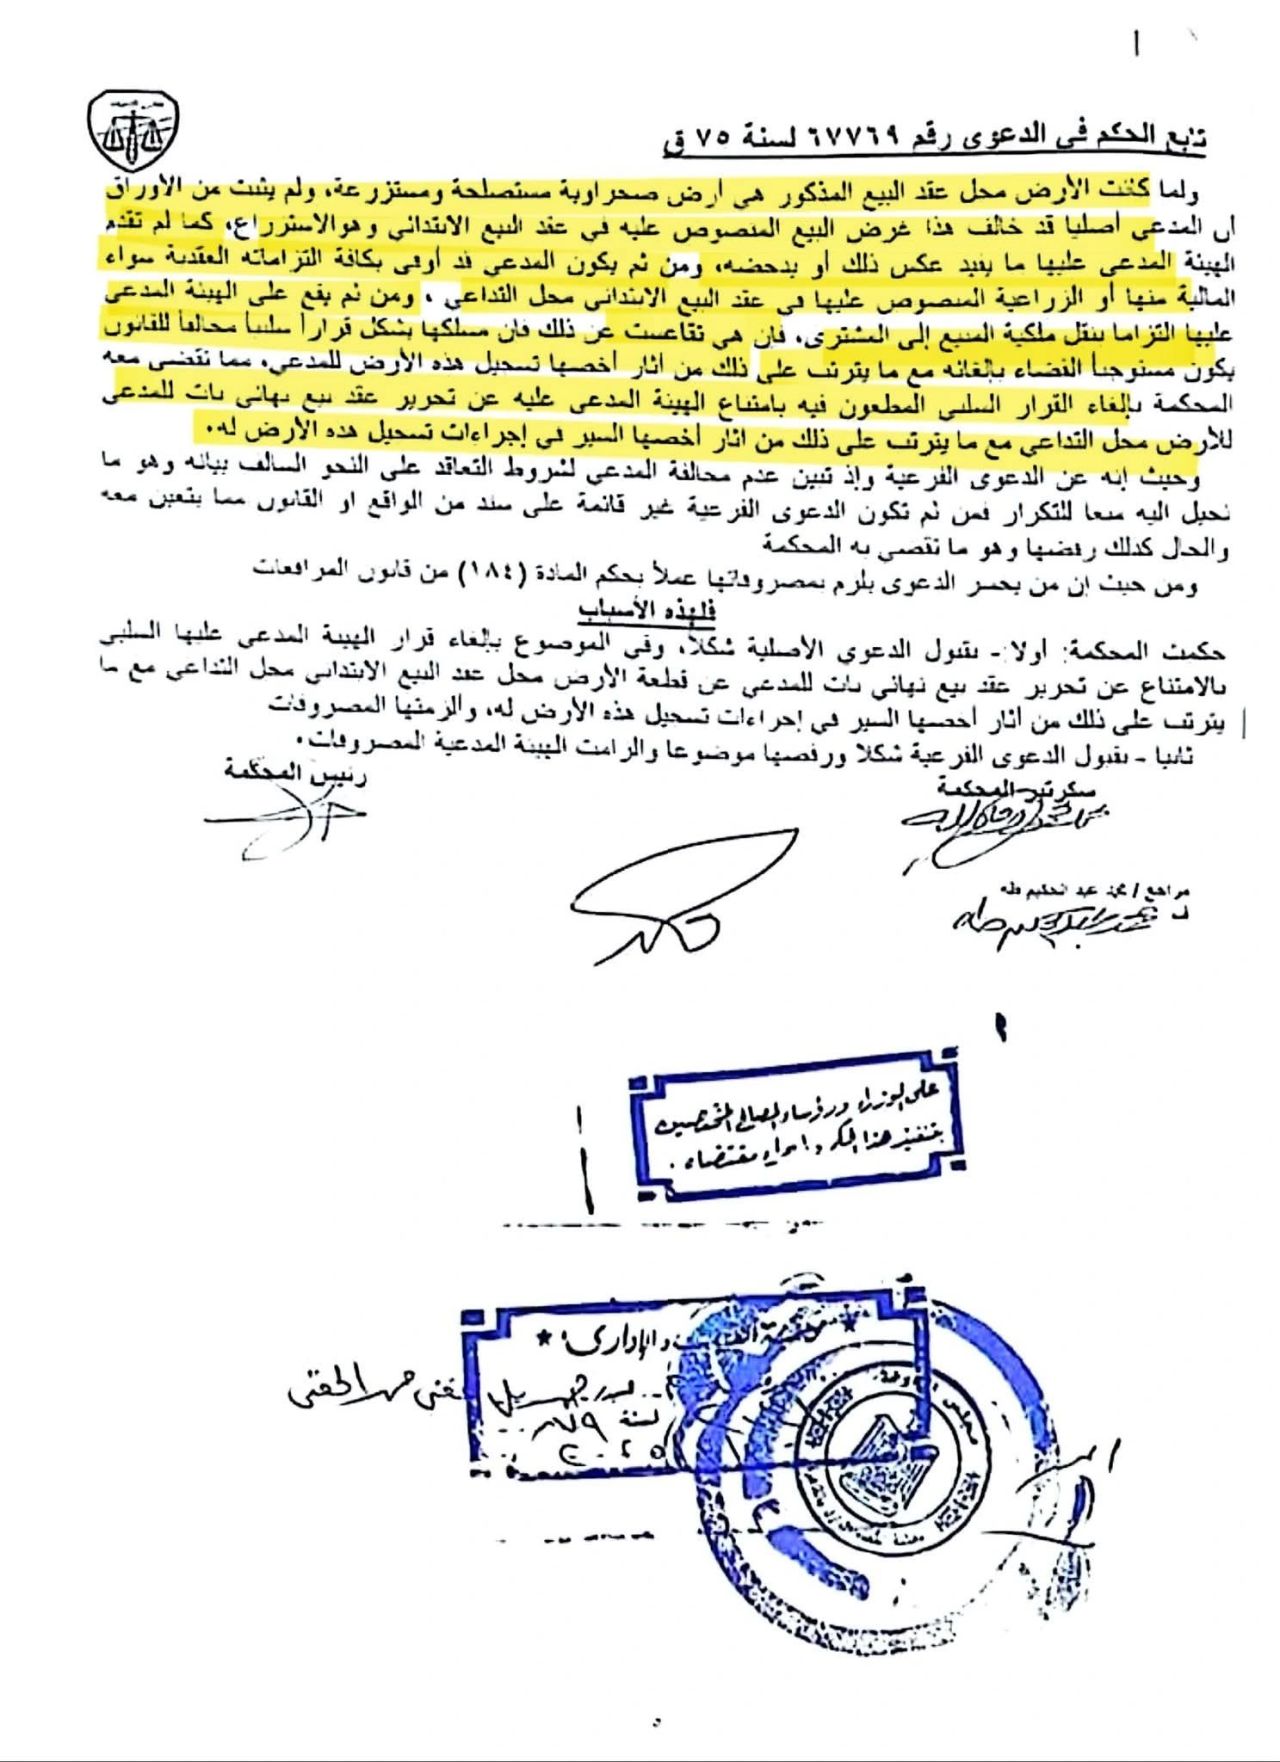 تابع الحكم في الدعوى رقم ٦٧٧٦٩ لسنة ٧٥ ق
ولما كانت الأرض محل عقد البيع المذكور هي أرض صحراوية مستصلحة ومستزرعة، ولم يثبت من الأوراق
أن المدعي أصليا قد خالف هذا غرض البيع المنصوص عليه في عقد البيع الابتدائي وهو الاستزراع، كما لم تقدم
الهيئة المدعى عليها ما يفيد عكس ذلك أو يدحضه، ومن ثم يكون المدعي قد أوفى بكافة التزاماته العقدية سواء
المالية منها أو الزراعية المنصوص عليها في عقد البيع الابتدائي محل التداعي ، ومن ثم يقع على الهيئة المدعى
عليها التزاما بنقل ملكية المبيع إلى المشتري، فإن هي تقاعست عن ذلك فإن مسلكها يشكل قراراً سلبياً مخالفاً للقانون
يكون مستوجباً القضاء بإلغائه مع ما يترتب على ذلك من آثار أخصها تسجيل هذه الأرض للمدعي، مما تقضي معه
المحكمة بإلغاء القرار السلبي المطعون فيه بامتناع الهيئة المدعى عليه عن تحرير عقد بيع نهائي بات للمدعي
للأرض محل التداعي مع ما يترتب على ذلك من آثار أخصها السير في إجراءات تسجيل هذه الأرض له.
وحيث إنه عن الدعوى الفرعية وإذ تبين عدم مخالفة المدعي لشروط التعاقد على النحو السالف بيانه وهو ما
نحيل اليه منعا للتكرار فمن ثم تكون الدعوى الفرعية غير قائمة على سند من الواقع او القانون مما يتعين معه
والحال كذلك رفضها وهو ما تقضي به المحكمة
ومن حيث إن من يخسر الدعوى يلزم بمصروفاتها عملاً بحكم المادة (١٨٤) من قانون المرافعات
فلهذه الأسباب
حكمت المحكمة: أولا:- بقبول الدعوي الأصلية شكلاً، وفي الموضوع بإلغاء قرار الهيئة المدعى عليها السلبي
بالامتناع عن تحرير عقد بيع نهائي بات للمدعي عن قطعة الأرض محل عقد البيع الابتدائي محل التداعي مع ما
يترتب على ذلك من آثار أخصها السير في إجراءات تسجيل هذه الأرض له، والزمتها المصروفات
ثانيا - بقبول الدعوى الفرعية شكلا ورفضها موضوعا والزامت الهيئة المدعية المصروفات.
سكرتير المحكمة رئيس المحكمة
مراجع / محمد عبد الحليم طه
على الوزراء ورؤساء المصالح المختصين
بتنفيذ هذا الحكم وإجراء مقتضاه .
والإدارى
لسنة
مجلس الدولة